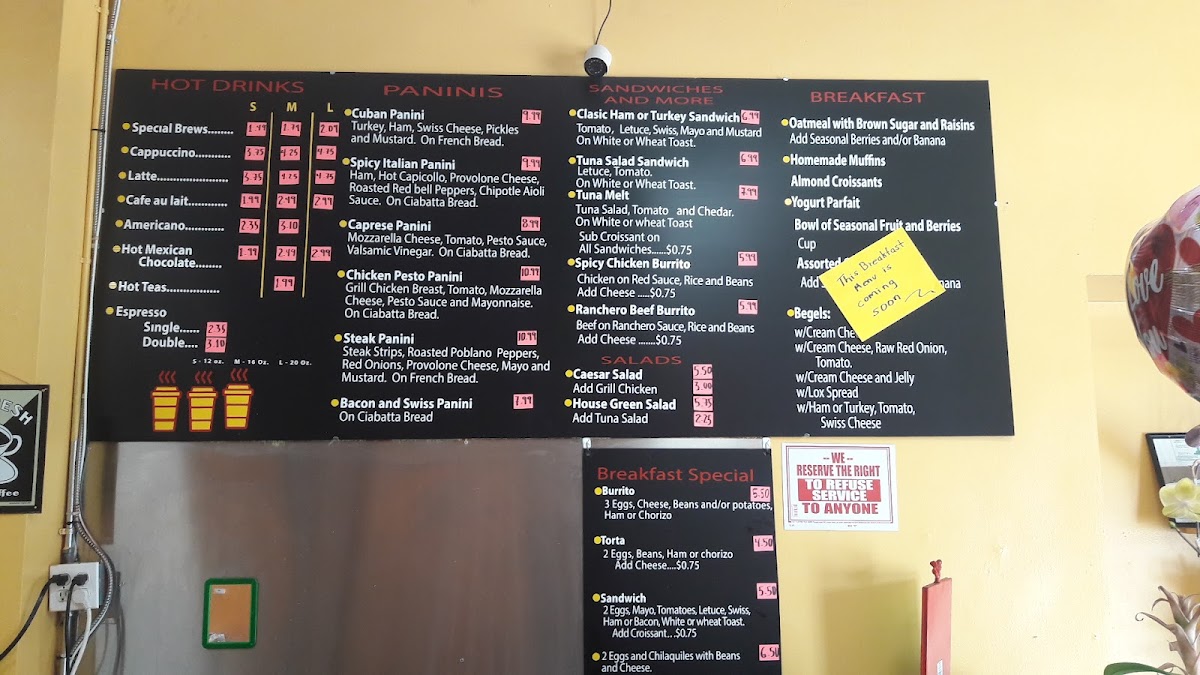 HOT DRINKS
S M L
Special Brews........ 1.49 1.79 2.09
Cappuccino............ 3.75 4.25 4.75
Latte.................. 3.75 4.25 4.75
Cafe au lait............ 1.99 2.49 2.99
Americano............. 2.35 3.10
Hot Mexican
Chocolate........ 1.99 2.49 2.99
Hot Teas................ 1.99
Espresso
Single...... 2.35
Double.... 3.10
S - 12 oz. M - 16 Oz. L - 20 Oz.
PANINIS
Cuban Panini 9.99
Turkey, Ham, Swiss Cheese, Pickles
and Mustard. On French Bread.
Spicy Italian Panini 9.99
Ham, Hot Capicollo, Provolone Cheese,
Roasted Red bell Peppers, Chipotle Aioli
Sauce. On Ciabatta Bread.
Caprese Panini 8.99
Mozzarella Cheese, Tomato, Pesto Sauce,
Valsamic Vinegar. On Ciabatta Bread.
Chicken Pesto Panini 10.99
Grill Chicken Breast, Tomato, Mozzarella
Cheese, Pesto Sauce and Mayonnaise.
On Ciabatta Bread.
Steak Panini 10.99
Steak Strips, Roasted Poblano Peppers,
Red Onions, Provolone Cheese, Mayo and
Mustard. On French Bread.
Bacon and Swiss Panini 7.99
On Ciabatta Bread
SANDWICHES
AND MORE
Clasic Ham or Turkey Sandwich 6.99
Tomato, Letuce, Swiss, Mayo and Mustard
On White or Wheat Toast.
Tuna Salad Sandwich 6.99
Letuce, Tomato.
On White or Wheat Toast.
Tuna Melt 7.99
Tuna Salad, Tomato and Chedar.
On White or wheat Toast
Sub Croissant on
All Sandwiches......$0.75
Spicy Chicken Burrito 5.99
Chicken on Red Sauce, Rice and Beans
Add Cheese .....$0.75
Ranchero Beef Burrito 5.99
Beef on Ranchero Sauce, Rice and Beans
Add Cheese .......$0.75
SALADS
Caesar Salad 5.50
Add Grill Chicken 3.00
House Green Salad 5.75
Add Tuna Salad 2.75
BREAKFAST
Oatmeal with Brown Sugar and Raisins
Add Seasonal Berries and/or Banana
Homemade Muffins
Almond Croissants
Yogurt Parfait
Bowl of Seasonal Fruit and Berries
Cup
Assorted
This Breakfast
Menu is
coming
soon
Begels:
w/Cream
w/Cream Cheese, Raw Red Onion,
Tomato.
w/Cream Cheese and Jelly
w/Lox Spread
w/Ham or Turkey, Tomato,
Swiss Cheese
Breakfast Special
Burrito 5.50
3 Eggs, Cheese, Beans and/or potatoes,
Ham or Chorizo
Torta 4.50
2 Eggs, Beans, Ham or chorizo
Add Cheese....$0.75
Sandwich 5.50
2 Eggs, Mayo, Tomatoes, Letuce, Swiss,
Ham or Bacon, White or wheat Toast.
Add Croissant...$0.75
2 Eggs and Chilaquiles with Beans 6.50
and Cheese.
-- WE --
RESERVE THE RIGHT
TO REFUSE
SERVICE
TO ANYONE